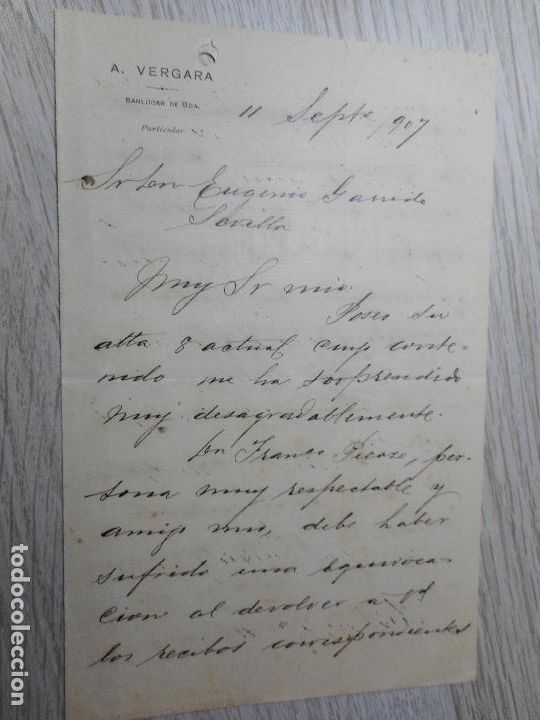 A. VERGARA
SANLUCAR DE BDA.
Particular
11 Septe 907
Sr Don Eugenio Garrido
Sevilla
Muy Sr mio:
Poseo su
atta 8 actual cuyo conte-
nido me ha sorprendido
muy desagradablemente.
Dn Franco Picazo, per-
sona muy respectable y
amigo mio, debe haber
sufrido una equivoca
cion al devolver a Vd
los recibos correspondientes
todocoleccion